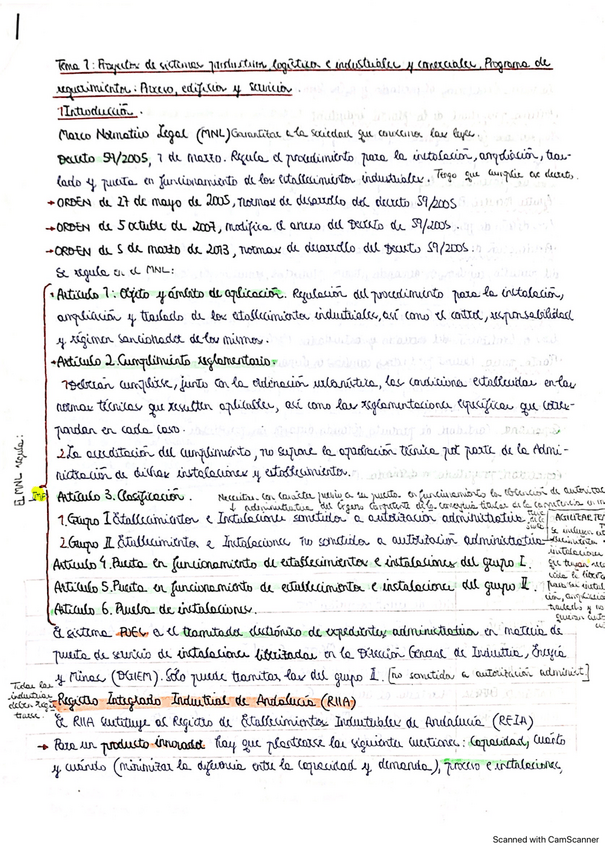 Tema 1: Proyectos de sistemas productivos, logísticos e industriales y comerciales. Programa de
requerimientos: Proceso, edificios y servicios.
1. Introducción.
Marco Normativo Legal (MNL) Garantizar a la sociedad que conocemos las leyes.
Decreto 59/2005, 1 de marzo. Regula el procedimiento para la instalación, ampliación, tras-
lado y puesta en funcionamiento de los establecimientos industriales. Tengo que cumplir ese decreto.
→ ORDEN de 27 de mayo de 2005, normas de desarrollo del decreto 59/2005
→ ORDEN de 5 octubre de 2007, modifica el anexo del Decreto de 59/2005.
→ ORDEN de 5 de marzo de 2013, normas de desarrollo del Decreto 59/2005.
Se regula en el MNL:
El MNL regula:
Artículo 1: Objeto y ámbito de aplicación. Regulación del procedimiento para la instalación,
ampliación y traslado de los establecimientos industriales, así como el control, responsabilidad
y régimen sancionador de los mismos.
Artículo 2. Cumplimiento reglamentario.
1. Deberán cumplirse, junto con la ordenación urbanística, las condiciones establecidas en las
normas técnicas que resulten aplicables, así como las reglamentaciones específicas que corres-
pondan en cada caso.
2. La acreditación del cumplimiento, no supone la aprobación técnica por parte de la Admi-
nistración de dichas instalaciones y establecimientos.
Artículo 3. Clasificación. Necesitan con carácter previo a su puesta en funcionamiento la obtención de autorizac
administrativa del órgano competente de la consejería titular de la competencia en
1. Grupo I Establecimientos e Instalaciones sometidos a autorización administrativa
2. Grupo II Establecimientos e Instalaciones no sometidos a autorización administrativa
Artículo 4. Puesta en funcionamiento de establecimientos e instalaciones del grupo I.
Artículo 5. Puesta en funcionamiento de establecimientos e instalaciones del grupo II.
Artículo 6. Prueba de instalaciones.
Se incluyen
instalaciones
que tengan
El sistema PUES es el tramitador electrónico de expedientes administrativos en materia de
puesta de servicio de instalaciones liberizadas en la Dirección General de Industria, Energía
y Minas (DGIEM). Sólo puede tramitar las del grupo II. [no sometida a autorización administ]
Todas las
industrias
deben regis
trarse.
Registro Integrado Industrial de Andalucía (RIIA)
El RIIA sustituye al Registro de Establecimientos Industriales de Andalucía (REIA)
→ Para un producto innovador hay que plantearse las siguientes cuestiones: capacidad, cuánto
y cuándo (minimizar la diferencia entre la capacidad y demanda), proceso e instalaciones,
Scanned with CamScanner